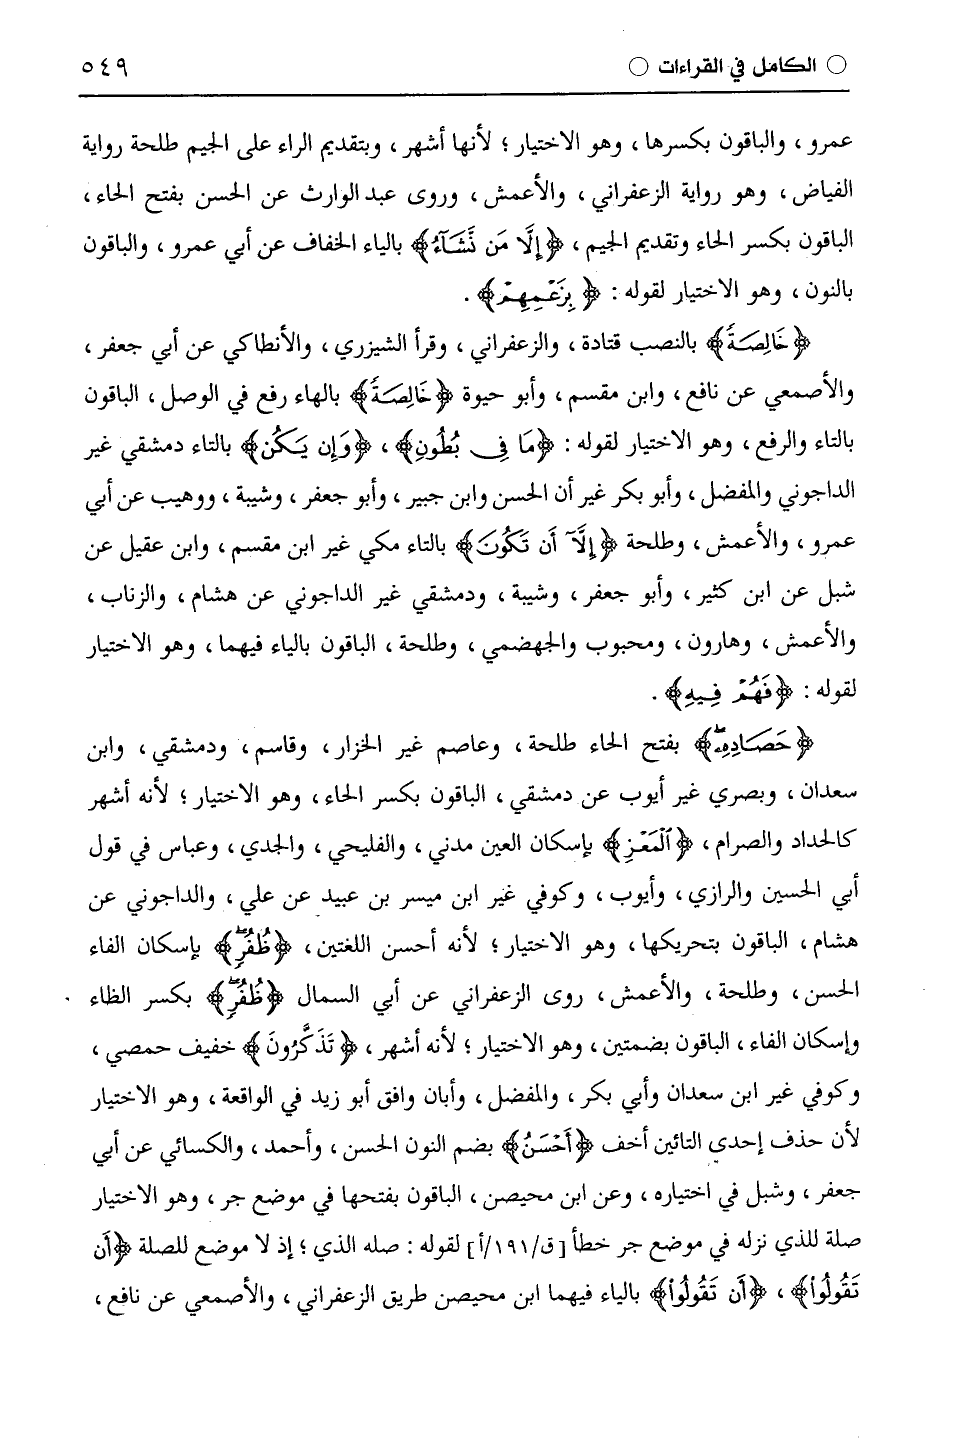 ○ الكامل في القراءات ○ ٥٤٩
عمرو ، والباقون بكسرها ، وهو الاختيار ؛ لأنها أشهر ، وبتقديم الراء على الجيم طلحة رواية
الفياض ، وهو رواية الزعفراني ، والأعمش ، وروى عبد الوارث عن الحسن بفتح الحاء ،
الباقون بكسر الحاء وتقديم الجيم ، ﴿إِلَّا مَن نَّشَآءُ﴾ بالياء الخفاف عن أبي عمرو ، والباقون
بالنون ، وهو الاختيار لقوله : ﴿بِزَعْمِهِمْ﴾ .
﴿خَالِصَةٌ﴾ بالنصب قتادة ، والزعفراني ، وقرأ الشيزري ، والأنطاكي عن أبي جعفر ،
والأصمعي عن نافع ، وابن مقسم ، وأبو حيوة ﴿خَالِصَةٌ﴾ بالهاء رفع في الوصل ، الباقون
بالتاء والرفع ، وهو الاختيار لقوله : ﴿مَا فِي بُطُونِ﴾ ، ﴿وَإِن يَكُن﴾ بالتاء دمشقي غير
الداجوني والمفضل ، وأبو بكر غير أن الحسن وابن جبير ، وأبو جعفر ، وشيبة ، ووهيب عن أبي
عمرو ، والأعمش ، وطلحة ﴿إِلَّآ أَن تَكُونَ﴾ بالتاء مكي غير ابن مقسم ، وابن عقيل عن
شبل عن ابن كثير ، وأبو جعفر ، وشيبة ، ودمشقي غير الداجوني عن هشام ، والزناب ،
والأعمش ، وهارون ، ومحبوب والجهضمي ، وطلحة ، الباقون بالياء فيهما ، وهو الاختيار
لقوله : ﴿فَهُمْ فِيهِ﴾ .
﴿حَصَادِهِۦ﴾ بفتح الحاء طلحة ، وعاصم غير الخزار ، وقاسم ، ودمشقي ، وابن
سعدان ، وبصري غير أيوب عن دمشقي ، الباقون بكسر الحاء ، وهو الاختيار ؛ لأنه أشهر
كالحداد والصرام ، ﴿ٱلْمَعْزِ﴾ بإسكان العين مدني ، والفليحي ، والجدي ، وعباس في قول
أبي الحسين والرازي ، وأيوب ، وكوفي غير ابن ميسر بن عبيد عن علي ، والداجوني عن
هشام ، الباقون بتحريكها ، وهو الاختيار ؛ لأنه أحسن اللغتين ، ﴿ظُفُرٍ﴾ بإسكان الفاء
الحسن ، وطلحة ، والأعمش ، روى الزعفراني عن أبي السمال ﴿ظُفُرٍ﴾ بكسر الظاء
وإسكان الفاء ، الباقون بضمتين ، وهو الاختيار ؛ لأنه أشهر ، ﴿تَذَكَّرُونَ﴾ خفيف حمصي ،
وكوفي غير ابن سعدان وأبي بكر ، والمفضل ، وأبان وافق أبو زيد في الواقعة ، وهو الاختيار
لأن حذف إحدي التائين أخف ﴿أَحْسَنُ﴾ بضم النون الحسن ، وأحمد ، والكسائي عن أبي
جعفر ، وشبل في اختياره ، وعن ابن محيصن ، الباقون بفتحها في موضع جر ، وهو الاختيار
صلة للذي نزله في موضع جر خطأ [ق/١٩١/أ] لقوله : صله الذي ؛ إذ لا موضع للصلة ﴿أَن
تَقُولُوٓا﴾ ، ﴿أَن تَقُولُوٓا﴾ بالياء فيهما ابن محيصن طريق الزعفراني ، والأصمعي عن نافع ،